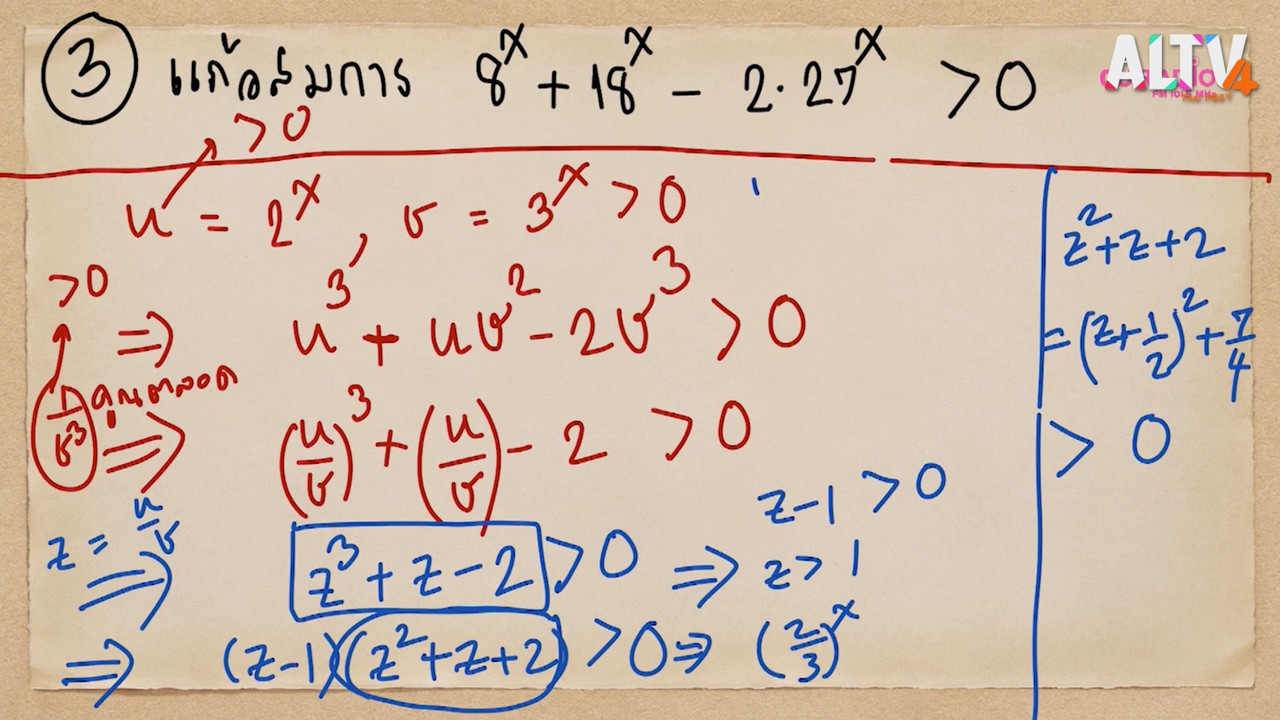 ③ แก้อสมการ 8^x + 18^x - 2·27^x > 0
ALTV4
FM 101.5 MHz
> 0
u = 2^x , v = 3^x > 0
> 0
⇒ u^3 + uv^2 - 2v^3 > 0
1/v^3 คูณตลอด
⇒ (u/v)^3 + (u/v) - 2 > 0
z = u/v
⇒ z^3 + z - 2 > 0 ⇒ z - 1 > 0
z > 1
⇒ (z-1)(z^2 + z + 2) > 0 ⇒ (2/3)^x
z^2 + z + 2
= (z + 1/2)^2 + 7/4
> 0